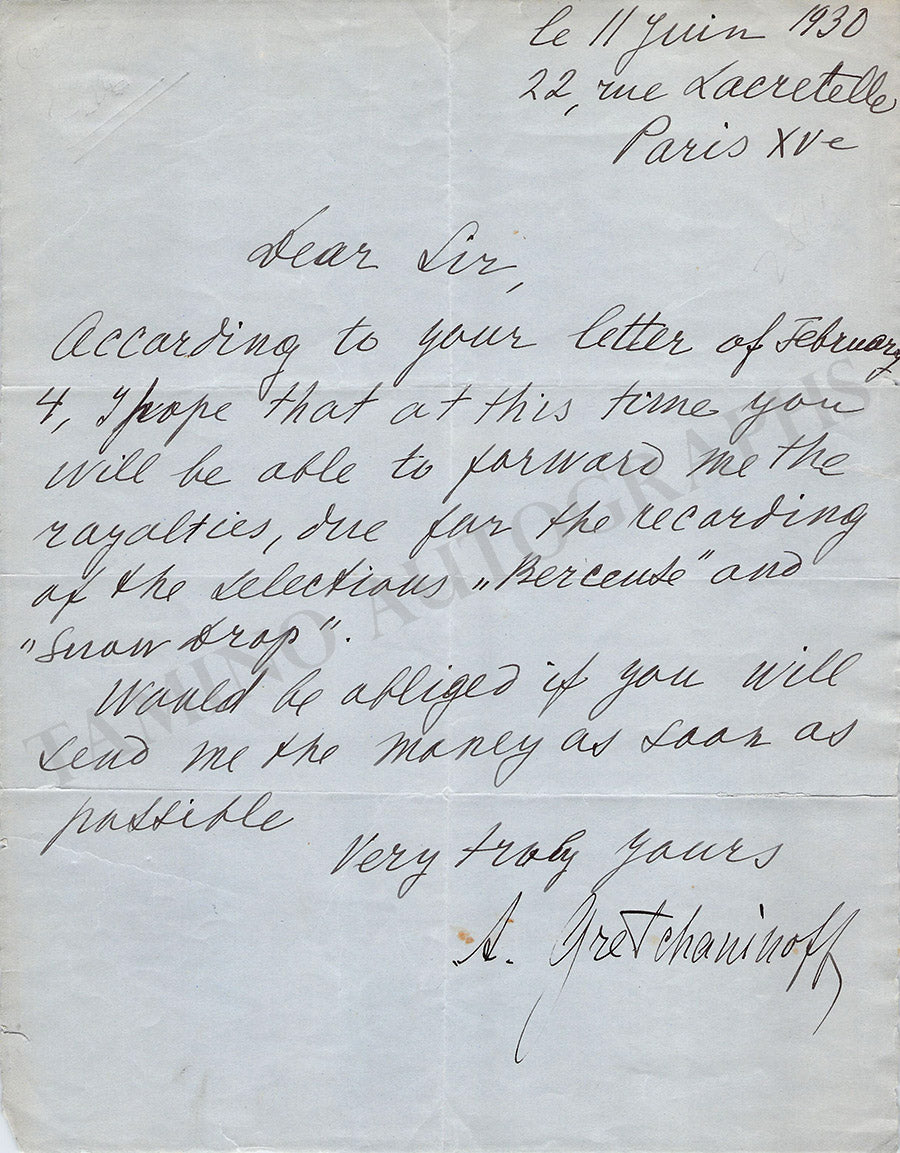 le 11 Juin 1930
22, rue Lacretelle
Paris XVe
Dear Sir,
According to your letter of February
4, I hope that at this time you
will be able to forward me the
royalties, due for the recording
of the selections „Berceuse" and
"Snow drop".
Would be obliged if you will
send me the money as soon as
possible
Very truly yours
A. Gretchaninoff
TAMINO AUTOGRAPHS